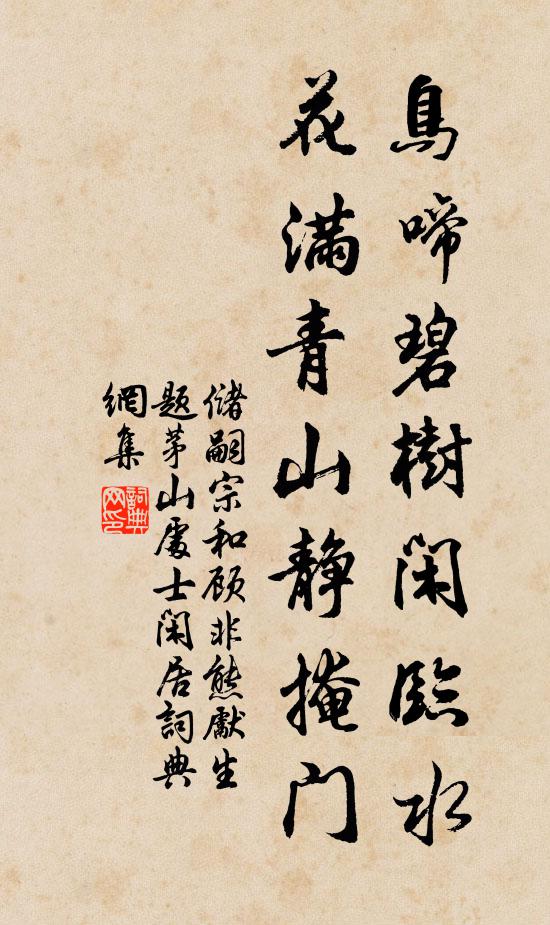 鳥啼碧樹閑臨水
花滿青山静掩門
儲嗣宗和顾非熊先生
题茅山處士閑居詞典
網集
詞典网印